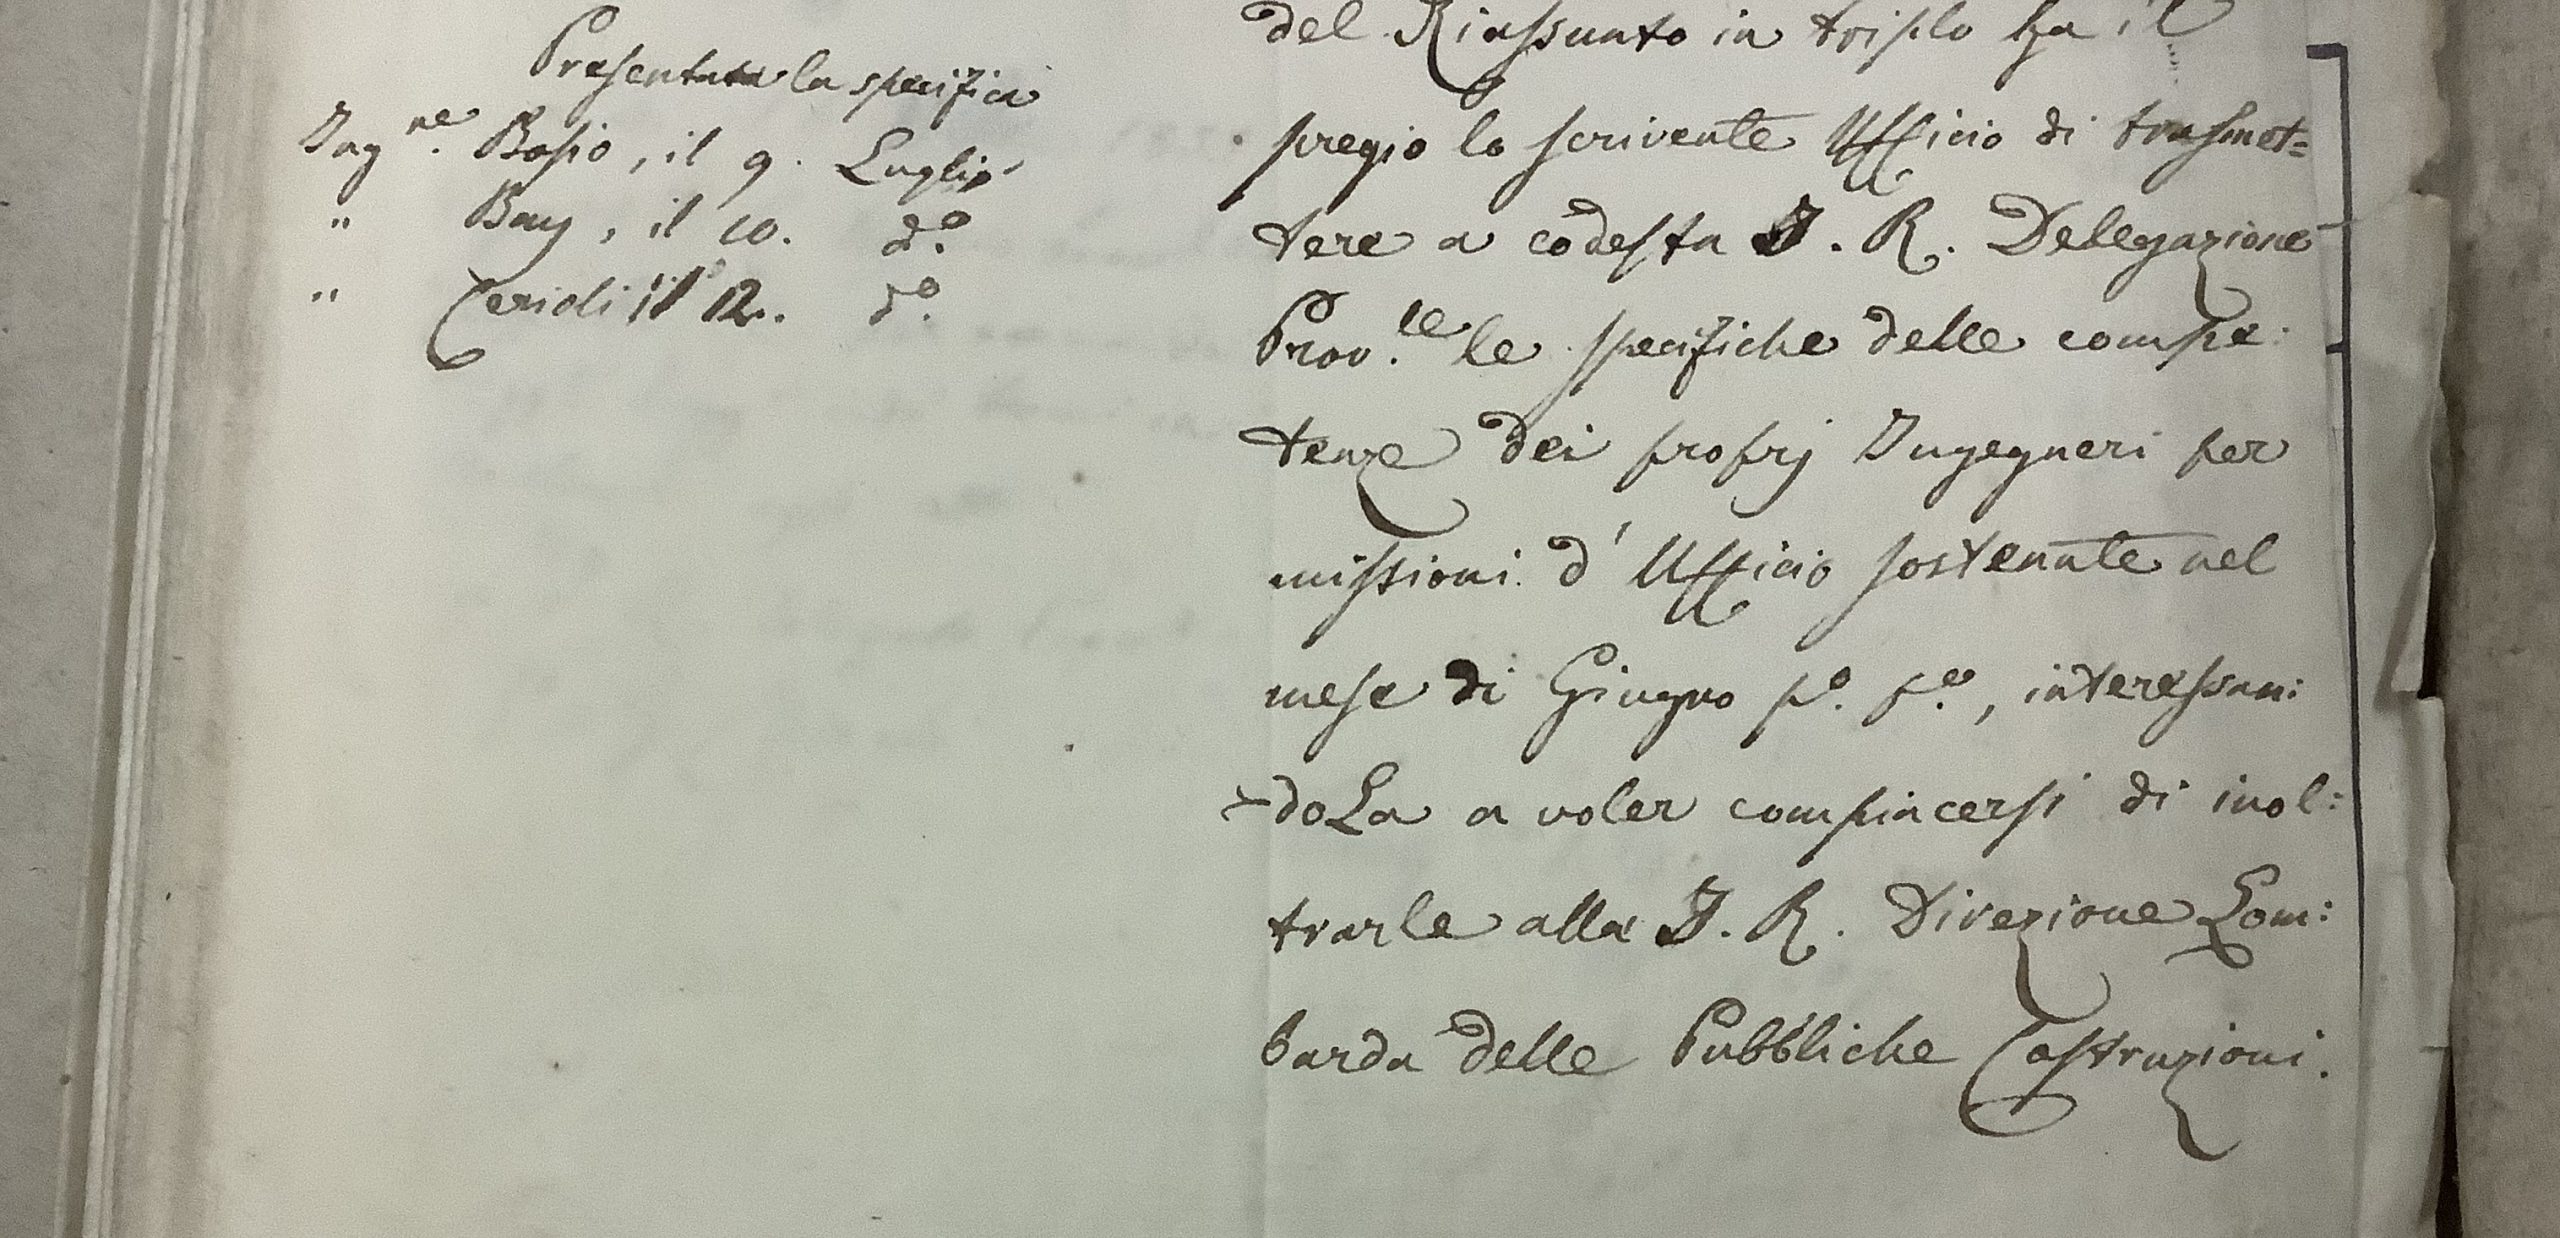 Presentata la specifica
Ing.ne Bosio, il 9. Luglio
" Bay, il 10. d.o
" Ceridi il 12. d.o
del Riassunto in triplo ha il
pregio lo scrivente Ufficio di trasmet=
tere a codesta I. R. Delegazione
Prov.le le specifiche delle compe:
tenze dei proprj Ingegneri per
missioni d'Ufficio sostenute nel
mese di Giugno p.o p.o, interessan:
doLa a voler compiacersi di inol:
trarle alla I. R. Direzione Lom:
barda delle Pubbliche Costruzioni.